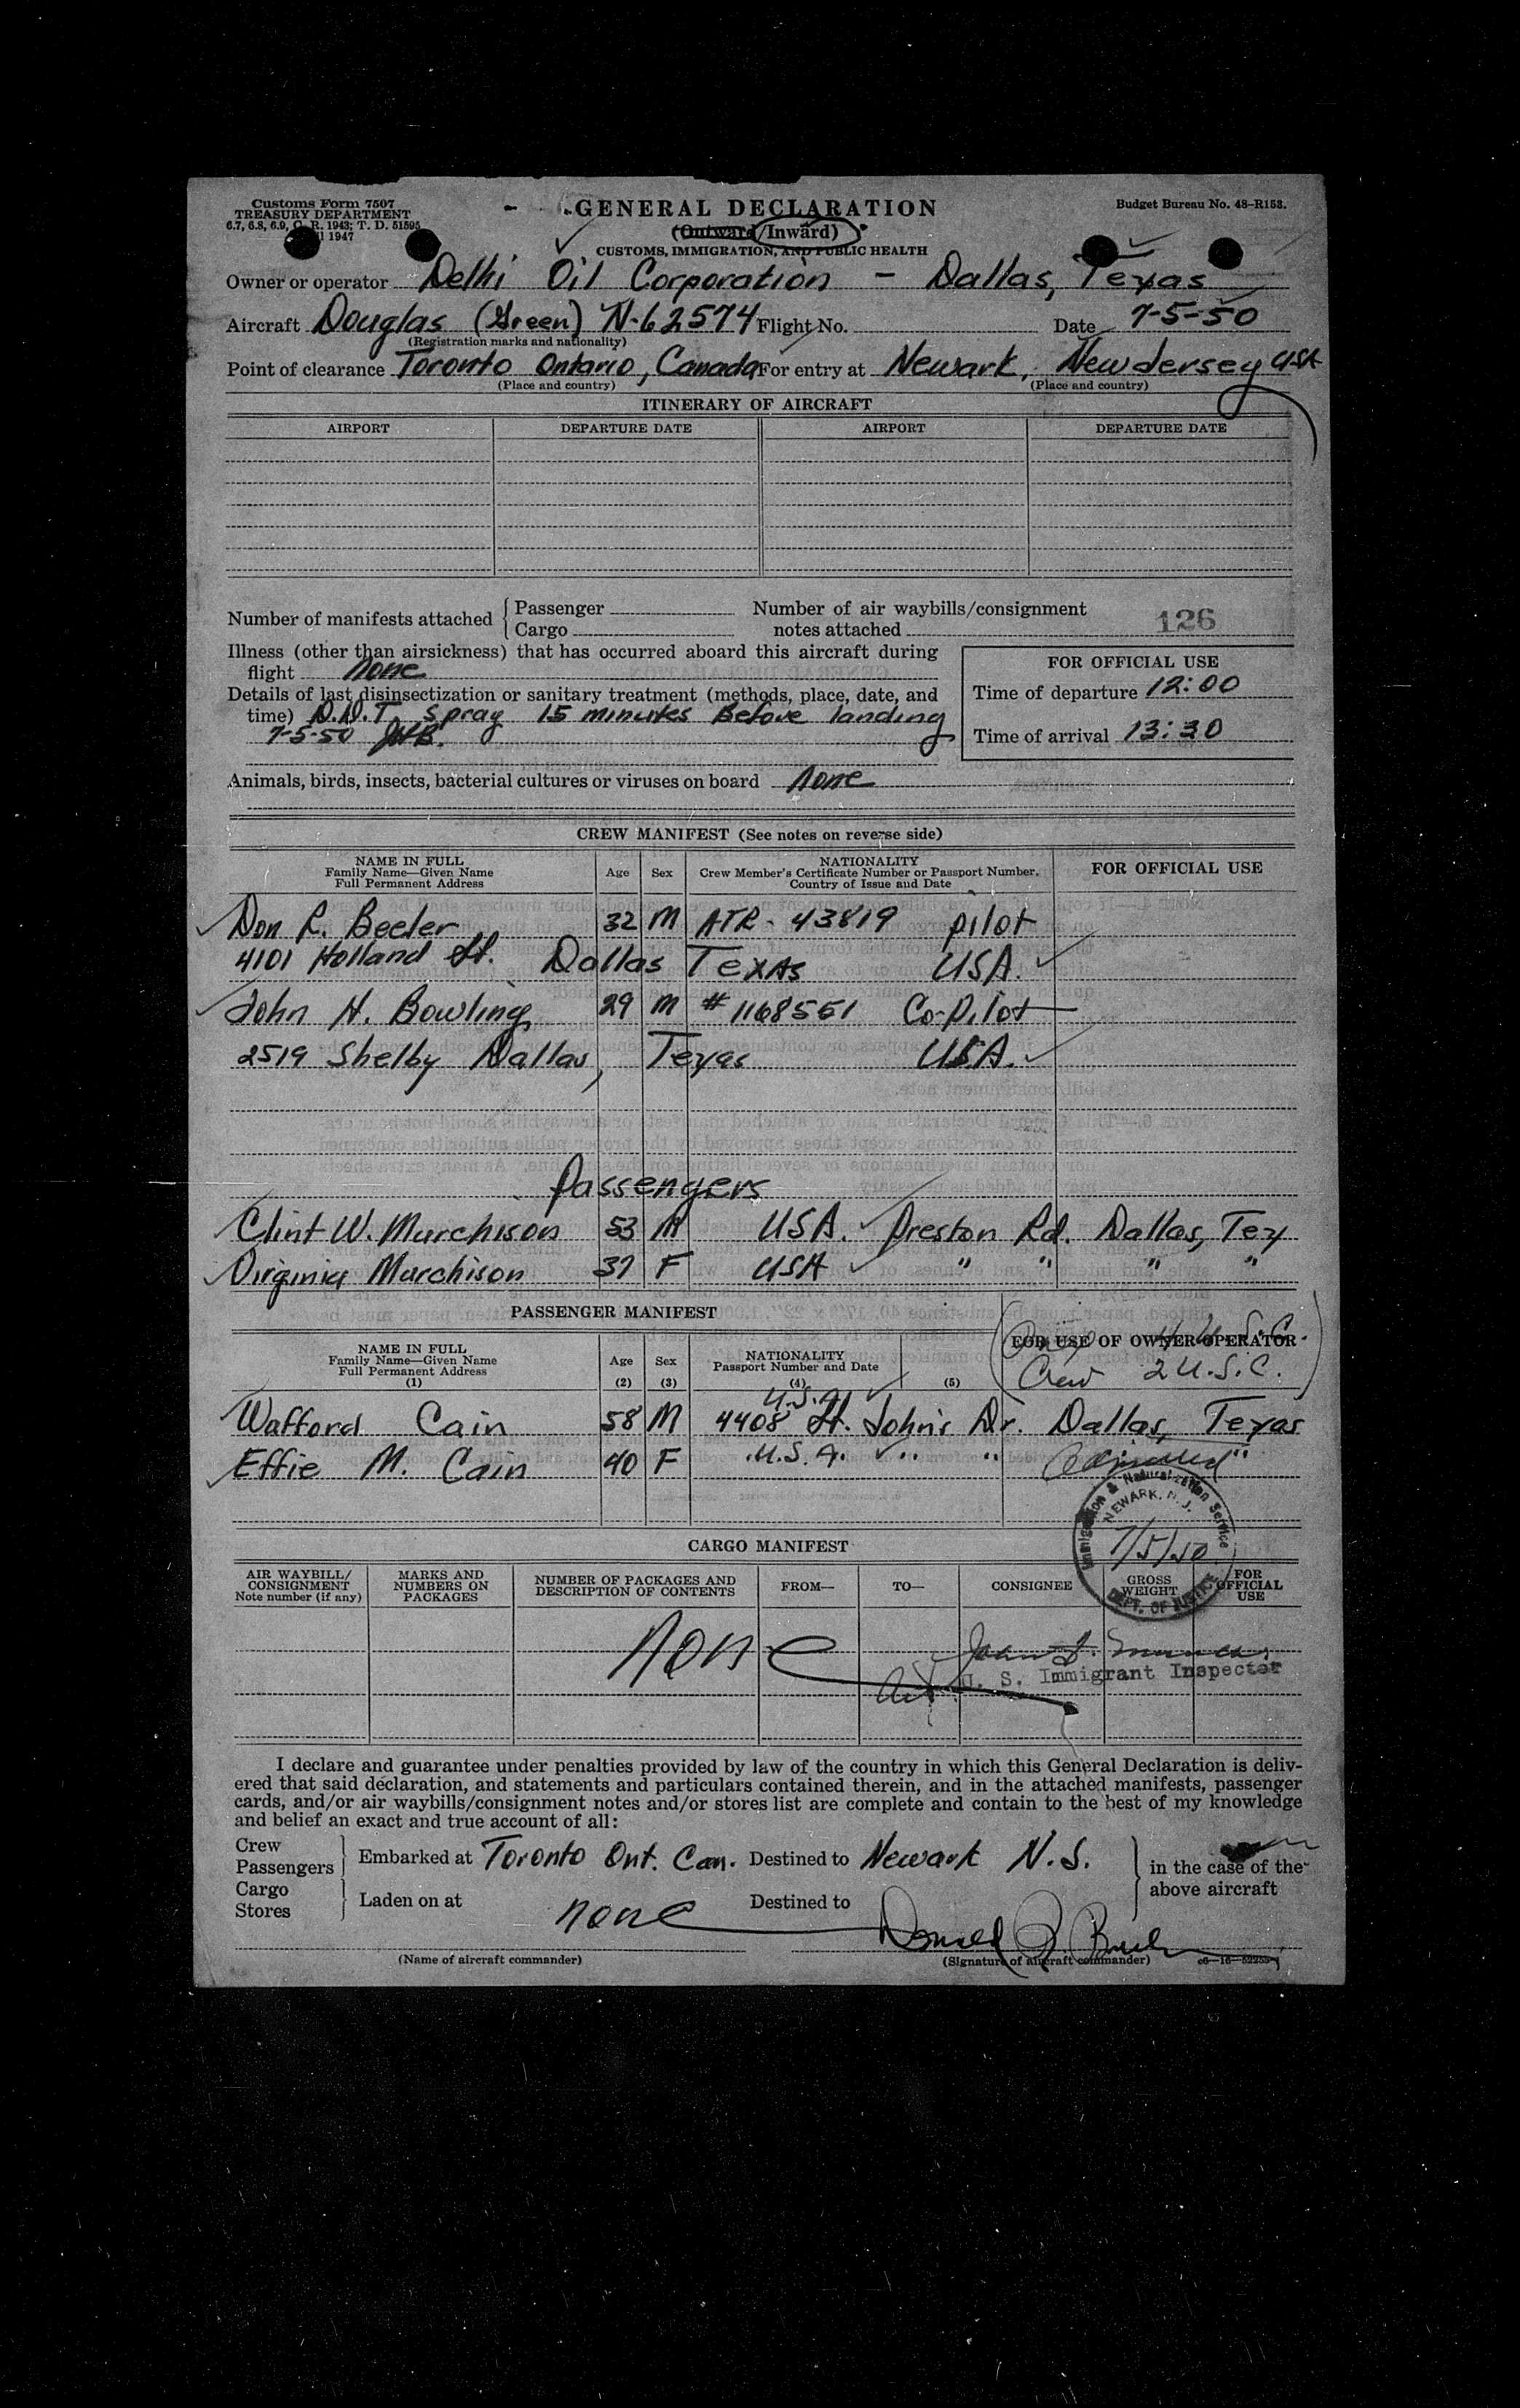 Customs Form 7507
TREASURY DEPARTMENT
6.7, 6.8, 6.9, C. R. 1943; T. D. 51595
1947
GENERAL DECLARATION
(Outward/Inward)
CUSTOMS, IMMIGRATION, AND PUBLIC HEALTH
Budget Bureau No. 48-R153.
Owner or operator Delhi Oil Corporation - Dallas, Texas
Aircraft Douglas (Green) N-62574 Flight No. Date 7-5-50
(Registration marks and nationality)
Point of clearance Toronto Ontario, Canada For entry at Newark, New Jersey USA
(Place and country) (Place and country)
ITINERARY OF AIRCRAFT
AIRPORT DEPARTURE DATE AIRPORT DEPARTURE DATE
Number of manifests attached { Passenger Number of air waybills/consignment
Cargo notes attached 126
Illness (other than airsickness) that has occurred aboard this aircraft during
flight None
Details of last disinsectization or sanitary treatment (methods, place, date, and
time) D.D.T. Spray 15 minutes Before landing
7-5-50 JHB.
FOR OFFICIAL USE
Time of departure 12:00
Time of arrival 13:30
Animals, birds, insects, bacterial cultures or viruses on board None
CREW MANIFEST (See notes on reverse side)
NAME IN FULL
Family Name—Given Name
Full Permanent Address
Age Sex
NATIONALITY
Crew Member's Certificate Number or Passport Number.
Country of Issue and Date
FOR OFFICIAL USE
Don R. Beeler 32 M ATR - 43819 pilot
4101 Holland St. Dallas Texas USA.
John H. Bowling 29 M # 1168551 Co-Pilot
2519 Shelby Dallas, Texas USA.
Passengers
Clint W. Murchison 53 M USA. Preston Rd. Dallas, Tex
Virginia Murchison 37 F USA " " " "
PASSENGER MANIFEST
NAME IN FULL
Family Name—Given Name
Full Permanent Address
(1)
Age
(2)
Sex
(3)
NATIONALITY
Passport Number and Date
(4)
(5)
FOR USE OF OWNER-OPERATOR
4 U.S.C.
Crew 2 U.S.C.
U.S.A.
Wofford Cain 58 M 4408 St. John's Dr. Dallas, Texas
Effie M. Cain 40 F U.S.A. " " "
Admitted
Immigration & Naturalization Service
NEWARK, N. J.
7/5/50
DEPT. OF JUSTICE
CARGO MANIFEST
AIR WAYBILL/
CONSIGNMENT
Note number (if any)
MARKS AND
NUMBERS ON
PACKAGES
NUMBER OF PACKAGES AND
DESCRIPTION OF CONTENTS
FROM— TO— CONSIGNEE
GROSS
WEIGHT
FOR
OFFICIAL
USE
None
U. S. Immigrant Inspector
I declare and guarantee under penalties provided by law of the country in which this General Declaration is deliv-
ered that said declaration, and statements and particulars contained therein, and in the attached manifests, passenger
cards, and/or air waybills/consignment notes and/or stores list are complete and contain to the best of my knowledge
and belief an exact and true account of all:
Crew
Passengers } Embarked at Toronto Ont. Can. Destined to Newark N.J. } in the case of the
Cargo
Stores } Laden on at none Destined to above aircraft
Donald R. Beeler
(Name of aircraft commander) (Signature of aircraft commander)